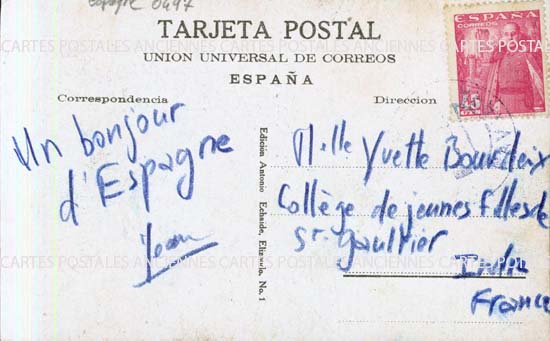 Espagne 0497
TARJETA POSTAL
UNION UNIVERSAL DE CORREOS
ESPAÑA
Correspondencia
Direccion
ESPAÑA
CORREOS
45
CTS
Un bonjour
d'Espagne
Jean
Edicion Antonio Echaide, Elizondo. No. 1
Mlle Yvette Bourdeix
Collège de jeunes filles de
St-gaultier
Indre
France
CARTES POSTALES ANCIENNES CARTES POSTALES ANCIENNES CARTES POSTALES
CARTES POSTALES ANCIENNES CARTES POSTALES ANCIENNES CARTES POSTALES